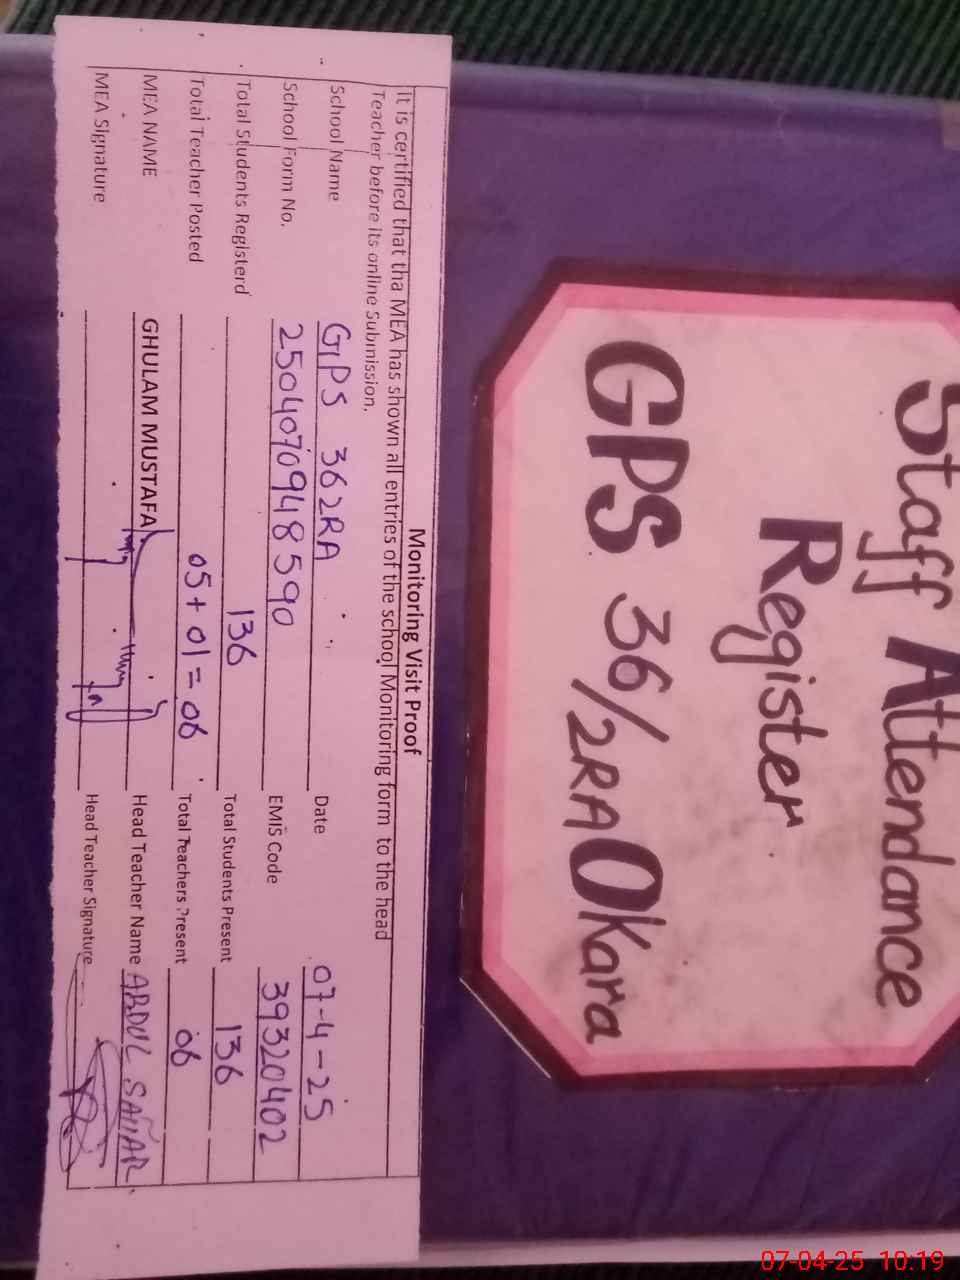 Staff Attendance
Register
GPS 36/2RA Okara
Monitoring Visit Proof
It is certified that tha MEA has shown all entries of the school Monitoring form to the head
Teacher before its online Submission.
School Name GPS 362RA Date 07-4-25
School Form No. 2504070948590 EMIS Code 39320402
Total Students Registerd 136 Total Students Present 136
Total Teacher Posted 05+01=06 Total Teachers Present 06
MEA NAME GHULAM MUSTAFA Head Teacher Name ABDUL SATTAR
MEA Signature Head Teacher Signature
07-04-25 10:19